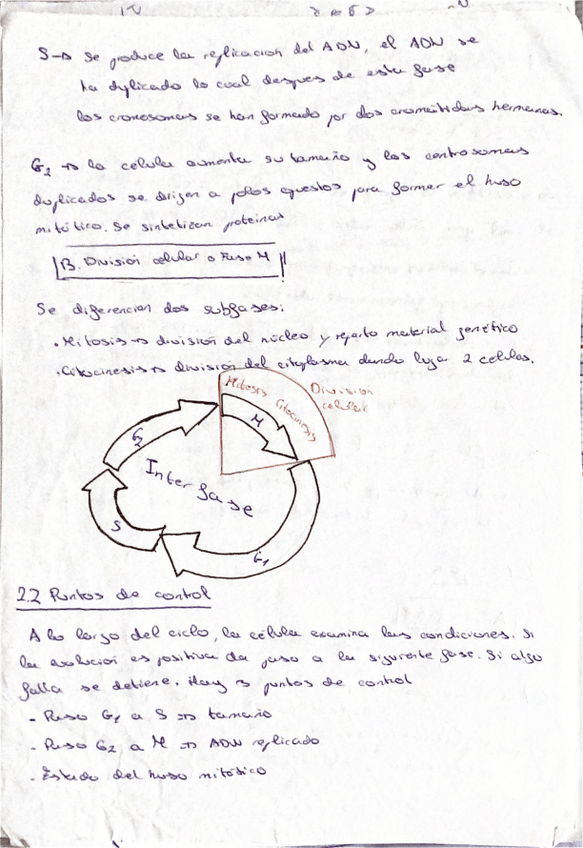 S→ Se produce la replicación del ADN, el ADN se
ha duplicado lo cual despues de esta fase
los cromosomas se han formado por dos cromátidas hermanas.
G2 → la celula aumenta su tamaño y los centrosomas
duplicados se dirigen a polos opuestos para formar el huso
mitótico. Se sintetizan proteinas
B. División celular o Fase M
Se diferencian dos subfases:
• Mitosis → división del núcleo y reparto material genético
• Citocinesis → división del citoplasma dando lugar 2 celulas.
Mitosis Citocinesis
División
celular
M
G2
Interfase
S
G1
2.2 Puntos de control
A lo largo del ciclo, la célula examina las condiciones. Si
la evolución es positiva da paso a la siguiente fase. Si algo
falla se detiene. Hay 3 puntos de control
- Paso G1 a S → tamaño
- Paso G2 a M → ADN replicado
- Estado del huso mitótico